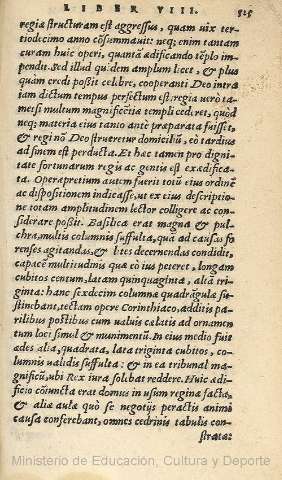 LIBER VIII. 525
regia structuram est aggressus, quam uix ter
tiodecimo anno cõsummauit: neq; enim tantam
curam huic operi, quantã ædificando tẽplo im
pendit. Sed illud quidem amplum licet, & plus
quàm credi poßit celebre, cooperanti Deo intra
iam dictum tempus perfectum est: regia uerò ta
metsi multum magnificẽtia templi cederet, quòd
neq; materia eius tanto antè præparata fuisset,
& regi nõ Deo strueretur domiciliũ, eò tardius
ad finem est perducta. Et hæc tamen pro digni
tate fortunarum regis ac gentis est exædifica
ta. Operæpretium autem fuerit totũ eius ordinẽ
ac dispositionem indicasse, ut ex eius descriptio
ne totam amplitudinem lector colligere ac con
siderare poßit. Basilica erat magna & pul
chra, multis columnis suffulta, quã ad causas fo
renses agitandas, & lites decernendas condidit,
capacẽ multitudinis quæ eò ius peteret, longam
cubitos centum, latam quinquaginta, altã tri
ginta: hanc sexdecim columnæ quadrãgulæ su
stinebant, tectam opere Corinthiaco, additis pa
rilibus postibus cum ualuis cælatis ad ornamen
tum loci simul & munimentũ. In eius medio fuit
ædes alia, quadrata, lata triginta cubitos, co-
lumnis ualidis suffulta: & in ea tribunal ma
gnificũ, ubi Rex iura solebat reddere. Huic ædi
ficio cõiuncta erat domus in usum reginæ facta,
& aliæ aulæ quò se negotijs peractis animi
causa conferebant, omnes cedrinis tabulis con-
stratæ:
Ministerio de Educación, Cultura y Deporte